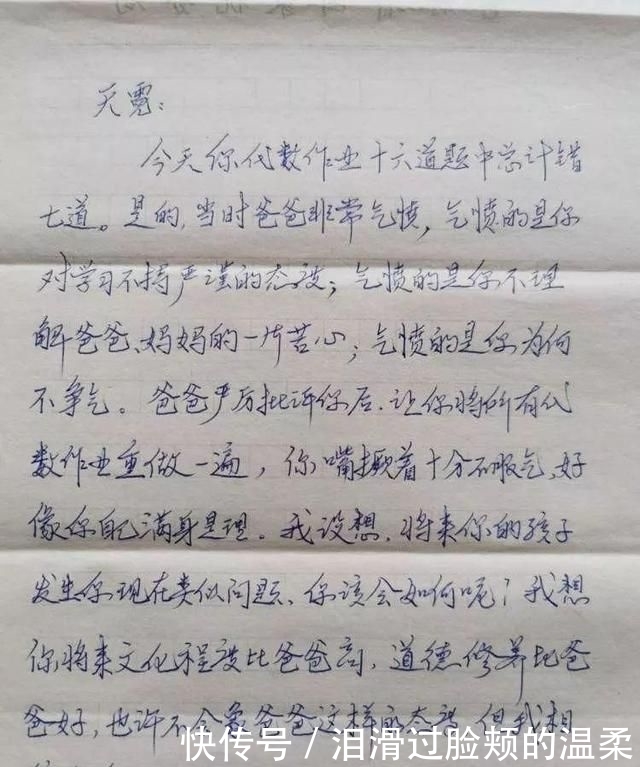 天霓：
今天你代数作业十六道题中总计错
七道。是的，当时爸爸非常气愤，气愤的是你
对学习不持严谨的态度；气愤的是你不理
解爸爸、妈妈的一片苦心；气愤的是你为何
不争气。爸爸严厉批评你后，让你将所有代
数作业重做一遍，你嘴撅着十分不服气，好
像你自己满身是理。我设想，将来你的孩子
发生你现在类似问题、你该会如何呢？我想
你将来文化程度比爸爸高，道德修养比爸
爸好，也许不会象爸爸这样的态度，但我想
快传号／泪滑过脸颊的温柔